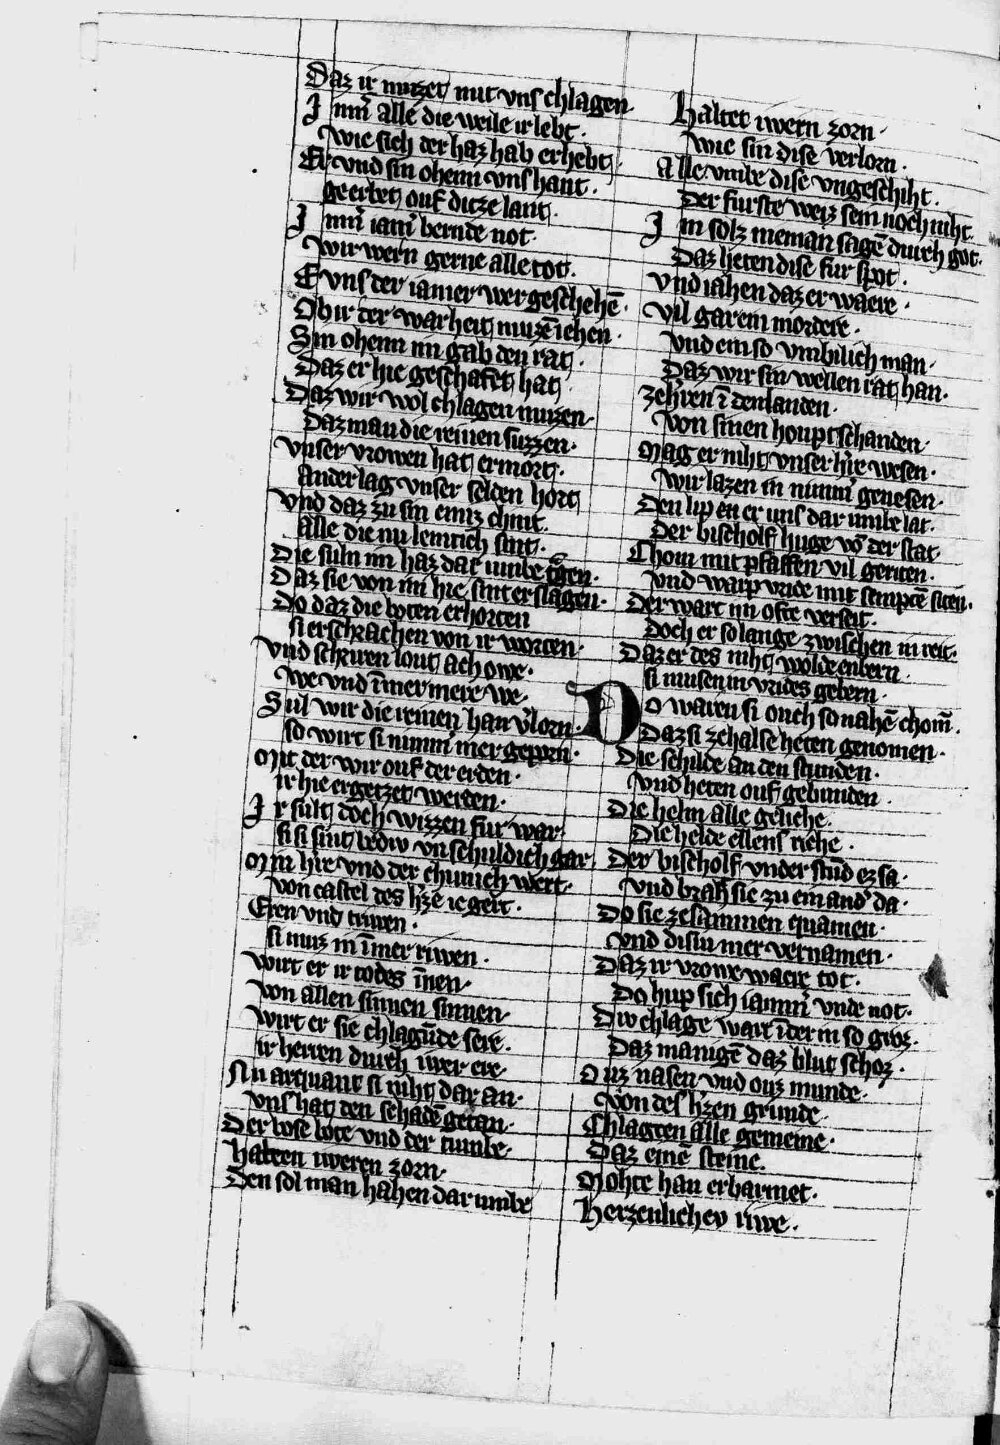 Daz ir mvzet mit vns chlagen
Im̄ alle die weile ir lebt.
Wie sich der haz hab erhebt.
Er vnd sin ohem vns hant.
geerbet ouf ditze lant.
Im̄ iam̄ bernde not.
Wir wern gerne alle tot.
E vns der iamer wer geschehē.
Ob ir der warheit muzē iehen.
Sin ohem im gab den rat.
Daz er hie geschafet hat.
Daz wir wol chlagen muzen.
Daz man die reinen suzzen.
Vnser vrowen hat ermort.
Ander lag vnser selden hort
Vnd daz zu sin einiz chint.
Alle die nu lemtich sint.
Die suln im haz dar umbe tgen.
Daz sie von im hie sint erslagen.
Do daz die boten erhorten
si erschrachen von ir worten.
Vnd schriren lout ach owe.
We vnd īmer mere we.
Sul wir die reinen han v̄lorn.
so wirt si nimm̄ mer geporn.
Mit der wir ouf der erden.
ir hie ergetzet werden.
Ir sult doch wizzen fur war
si si sint bediv vnschuldich gar.
Min h̄re vnd der chunich wert.
von castel des h̄ze ie gert.
Eren vnd triwen.
si muz in īmer riwen.
Wirt er ir todes īnen.
Von allen sinnen sinnen.
Wirt er sie chlagūde sere.
ir herren durch iwer ere.
Nu arquant si niht dar an.
Vns hat den schadē getan.
Der bose bote vnd der tumbe.
Habten iweren zorn.
Den sol man hahen dar umbe
Haltet iwern zorn.
Wie sin dise verlorn.
Alle vmbe dise vngeschiht.
Der furste weiz sein noch niht.
Im solz nieman sagē durch got.
Daz heten dise fur spot.
Vnd iahen daz er waere.
Vil gar ein mordere.
Vnd ein so vmbilich man.
Daz wir sin wellen rat han.
Zeh̄ren ī den landen.
Von sinen houpt schanden.
Mag er niht vnser h̄re wesen.
Wir lazen in nimm̄ genesen.
Den lip en er uns dar umbe lat.
Der bischolf huge vō der stat.
Chom mit pfaffen vil geriten.
Vnd warp vride mit sempftē siten.
Der wart im ofte verseit.
Doch er so lange zwischen in reit.
Daz er des niht wolde enbern.
si musen im vrides gebern.
Do waren si ouch so nahē chom̄.
Daz si ze halse heten genomen.
Die schilde an den stunden.
Vnd heten ouf gebunden.
Die helm alle geliche.
Die helde ellens riche.
Der bischolf vnder stūd ez sa.
Vnd brah sie zu ein and̄ da.
Do sie zesammen quamen.
Vnd disiu mer vernamen.
Daz ir vrowe waere tot.
Do hup sich iamm̄ vnde not.
Div chlage wart īder in so groz.
Daz manigē daz blut schoz.
Ouz nasen vnd ouz munde.
Von des h̄zen grunde.
Chlagten alle gemeine.
Daz eine steine.
Mohte han erbarmet.
Herzenlichev riwe.